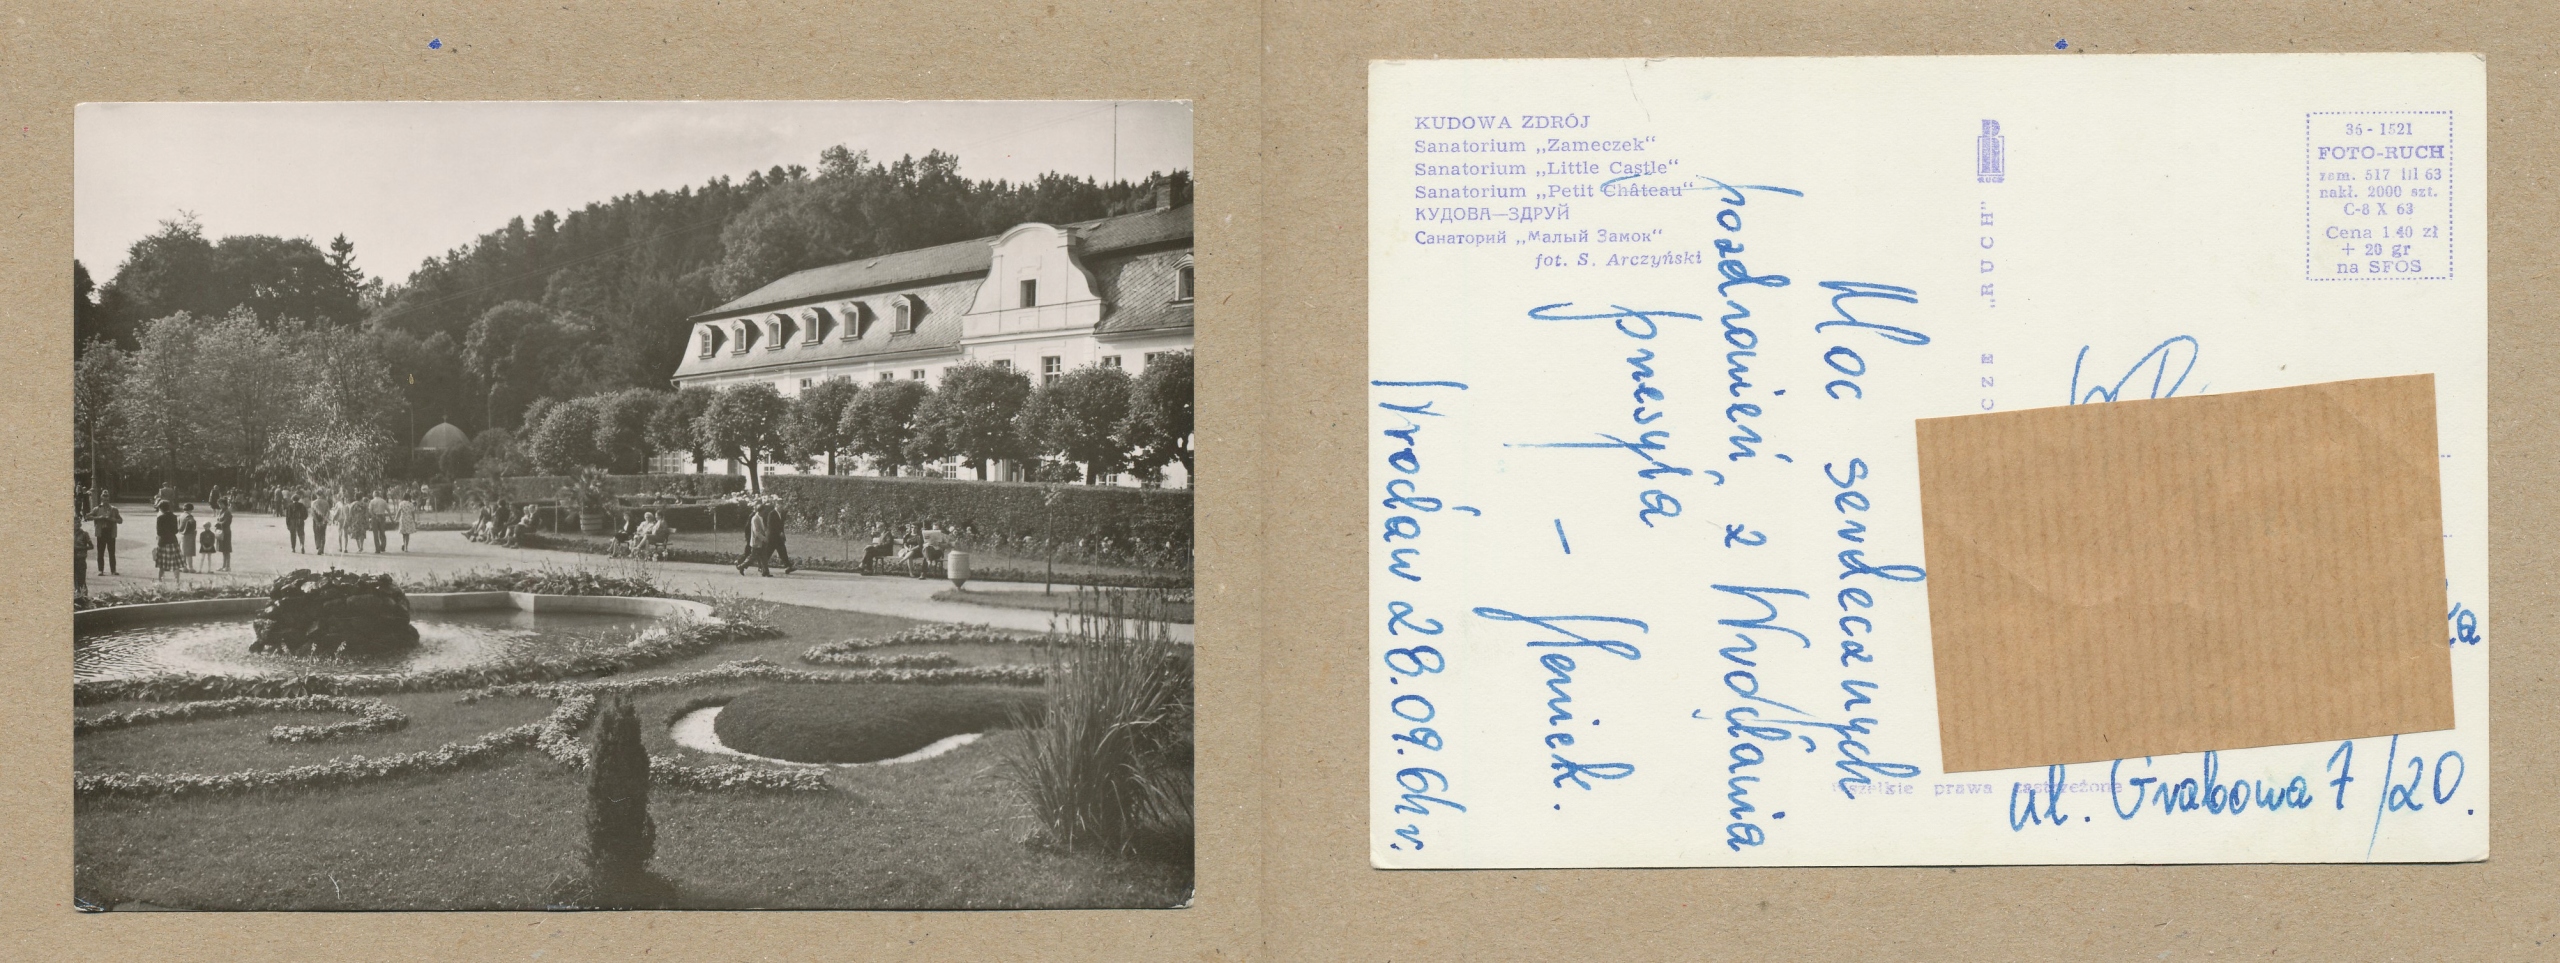 KUDOWA ZDRÓJ
Sanatorium „Zameczek“
Sanatorium „Little Castle“
Sanatorium „Petit Château“
КУДОВА—ЗДРУЙ
Санаторий „Малый Замок“
fot. S. Arczyński
RUCH
„RUCH“
CZE
Wszelkie prawa zastrzeżone
36-1521
FOTO-RUCH
zam. 517 III 63
nakł. 2000 szt.
C-8 X 63
Cena 1 40 zł
+ 20 gr
na SFOS
Moc serdecznych
pozdrowień z Wrocławia
przesyła
– Heniek.
Wrocław 28.09.64 r.
ul. Grabowa 7/20.